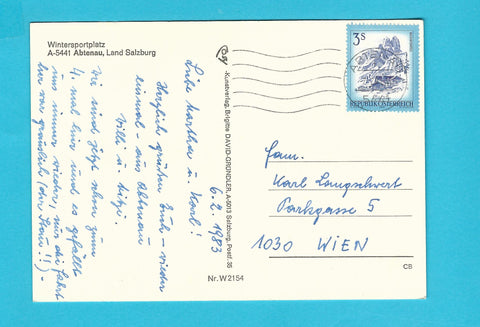 Wintersportplatz
A-5441 Abtenau, Land Salzburg
6.2.1983
Liebe Martha u. Karl!
Herzlich grüßen Euch - wieder
einmal - aus Abtenau
Willi u.
Wir sind jetzt schon zum
4. mal hier und es gefällt
uns immer wieder, nur die Fahrt
her war grauslich (der Stau!!) -
-Kunstverlag, Brigitte DAVID-GRÜNDLER, A-5013 Salzburg, Postf. 35
Nr. W 2154
3S
REPUBLIK ÖSTERREICH
Fam.
Karl Langschwert
Parkgasse 5
1030 WIEN
CB